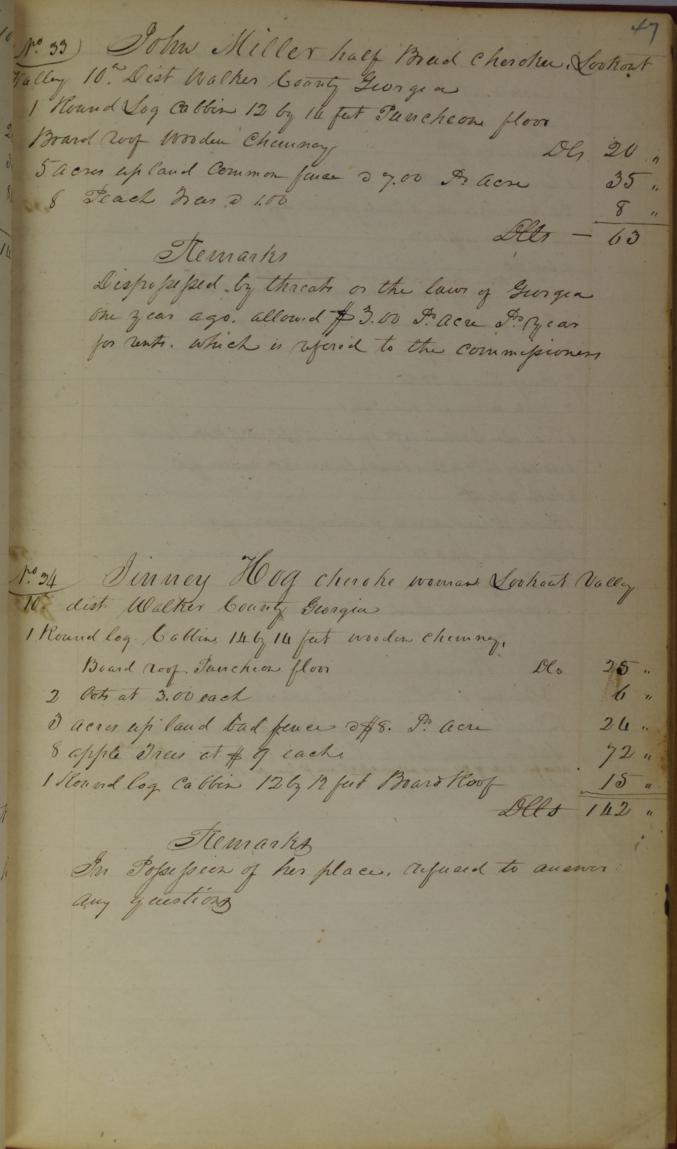 47
No 33) John Miller half Breed Cherokee, Lookout
Valley 10th Dist Walker County Georgia
1 Round Log Cabbin 12 by 14 feet Puncheon floor
Board roof Wooden Chemney Dls 20 "
5 acres upland Common fence @ 7.00 Pr Acre 35 "
8 Peach Trees @ 1.00 8 "
Dlls — 63
Remarks
Dispossessed by threats or the laws of Georgia
one year ago. allowed $3.00 Pr acre Pr year
for rents. which is refered to the commissioners
No 34 Jinney Hog cheroke woman Lookout Valley
10th dist Walker County Georgia
1 Round log Cabbin 14 by 14 feet wooden chemney,
Board roof Puncheon floor Dls 25 "
2 at 3.00 each 6 "
3 acres up land bad fence @ $8. Pr acre 24 "
8 apple Trees at $9 each 72 "
1 Round log Cabbin 12 by 12 feet Board Roof 15 "
Dlls 142 "
Remarks
In Possession of her place. refused to answer
any questions